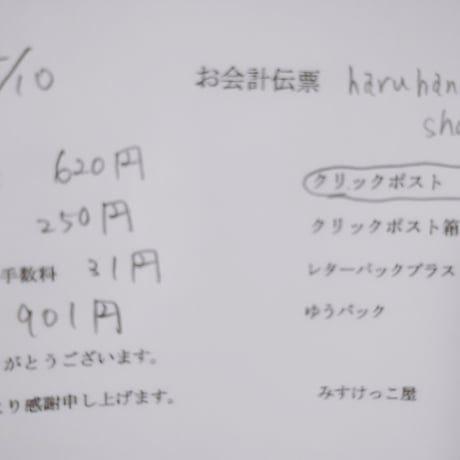 /10
お会計伝票 haruhan
sho
620円
クリックポスト
250円
クリックポスト箱
手数料 31円
レターパックプラス
901円
ゆうパック
がとうございます。
り感謝申し上げます。
みすけっこ屋